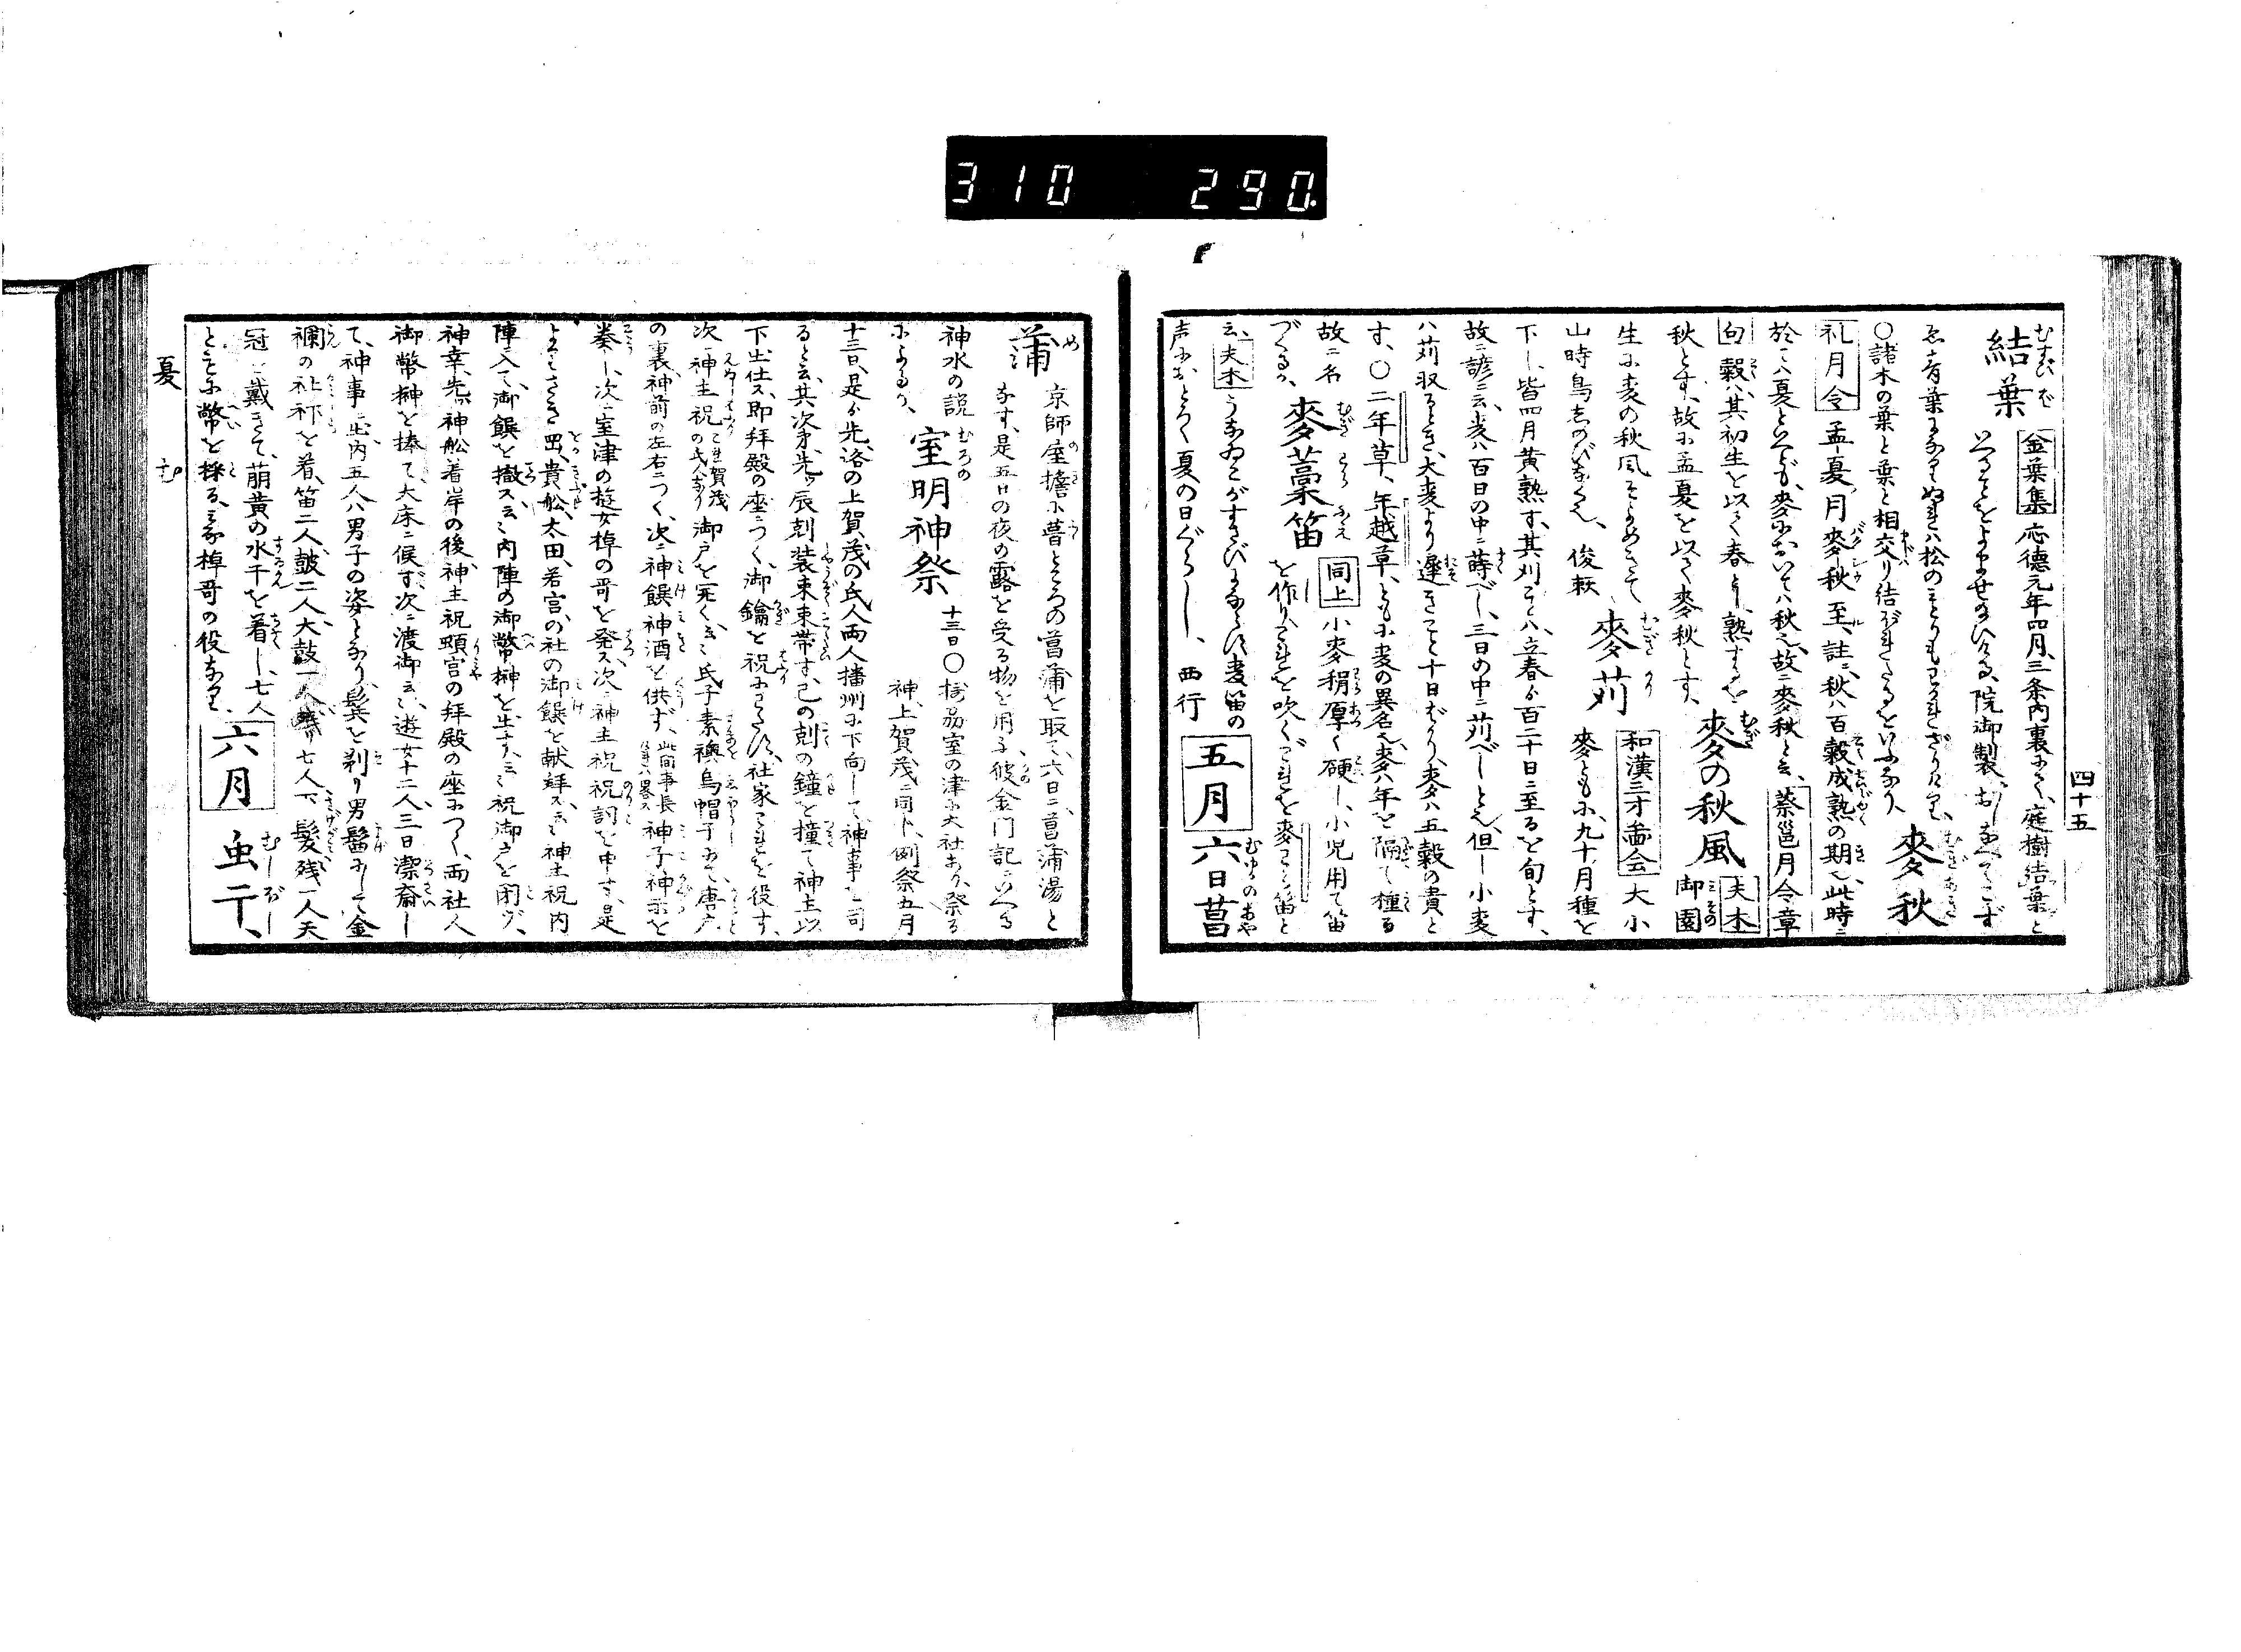 310 290.
四十五
結葉 金葉集 応徳元年四月、三条内裏にて、庭樹結葉と
いへることをよませ給ひける、院御製 おしなべてこず
ゑ青葉になりぬれば松のみどりもわかれざりけり、
○諸木の葉と葉と相交り結ばれたるをいふなり、 麥秋
礼月令 孟夏ノ月麥秋至、註ニ、秋ハ百穀成熟の期也、此時ニ
於てハ夏といへども、麥においてハ秋也、故ニ麥秋と云、 蔡邕月令章
句 穀ハ其初生を以て春とし、熟するを
秋とす、故に孟夏を以て麥秋とす、 麥の秋風 夫木 御園
生に麦の秋風そよめきて
山時鳥しのびなくなり、 俊頼 麥刈 和漢三才圖会 大小
麥ともに、九十月種を
下し、皆四月黄熟す、其刈こと八、立春より百二十日ニ至るを旬とす、
故ニ諺云、麦ハ百日の中ニ蒔べし、三日の中ニ苅べしと也、但し小麥
ハ苅取るとき、大麥より遲きこと十日ばかり、麥ハ五穀の貴と
す、○二年草、年越草、ともに麦の異名也、麥ハ年を隔て種る
故ニ名づくるか、 麥藁笛 同上 小麥稈厚く硬し、小児用て笛
を作り、これを吹く、これを麥わら笛と
云、 夫木 うなゐこがすさびにならす麦笛の
声におどろく夏の日ぐらし、 西行 五月 六日菖
蒲 京師屋擔に葺ところの菖蒲を取て、六日ニ、菖蒲湯と
なす、是五日の夜の露を受る物を用ふ、彼金門記にいへる
神水の説
によるか、 室明神祭 十三日○播州室の津に大社あり、祭る
神、上賀茂ニ同ト、例祭五月
十三日、是より先、洛の上賀茂の氏人両人播州に下向して、神事を司
ると云、其次第、先ツ辰剋装束束帯す、巳の剋の鐘を撞て神主以
下出仕ス、即拝殿の座につく、御鑰を祝にわたす、社家これを役す、
次ニ神主祝の氏人なり 御戸を開くと云々、氏子素襖烏帽子にて唐戸
の裏、神前の左右ニつく、次ニ神饌神酒を供ず、 神子神楽を
奏し、次ニ室津の遊女棹の哥を発ス、次ニ神主祝祝詞を申す、是
貴舩、太田、若宮の社の御饌を献拜ス、云々神主祝内
陣ニ入て、御饌を撤ス、云々内陣の御幣榊を出す、云々祝御戸を闭ヅ、
神幸、先ニ神舩着岸の後、神主祝頓宮の拜殿の座につく、両社人
御幣榊を捧て大床ニ候す、次ニ渡御云々、遊女十二人、三日潔齋し
て、神事ニ出、内五人ハ男子の姿となり、鬂を剃り男髷にして金
襴の社祢を着、笛二人、皷二人、大鼓一人、残り七人下髮、残一人天
冠を戴きて、萠黄の水干を着し、七人
ともに幣を採る、云々棹哥の役なり、 六月 虫干、
夏 む